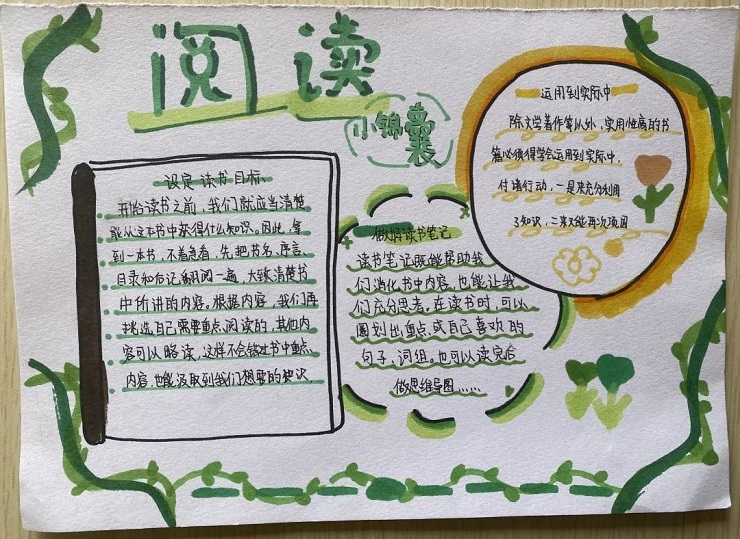 阅读
小锦囊
设定读书目标
开始读书之前,我们就应当清楚
能从这本书中获得什么知识。因此,拿
到一本书,不着急看,先把书名、序言、
目录和后记翻阅一遍,大致清楚书
中所讲的内容。根据内容,我们再
挑选自己需要重点阅读的,其他内
容可以略读,这样不会错过书中重点
内容,也能汲取到我们想要的知识
做好读书笔记
读书笔记既能帮助我
们消化书中内容,也能让我
们充分思考。在读书时,可以
圈划出重点,或自己喜欢的
句子、词组。也可以读完后
做思维导图……
运用到实际中
除文学著作等以外,实用性质的书
籍必须得学会运用到实际中,
付诸行动,一是来充分利用
了知识,二来又能再次巩固